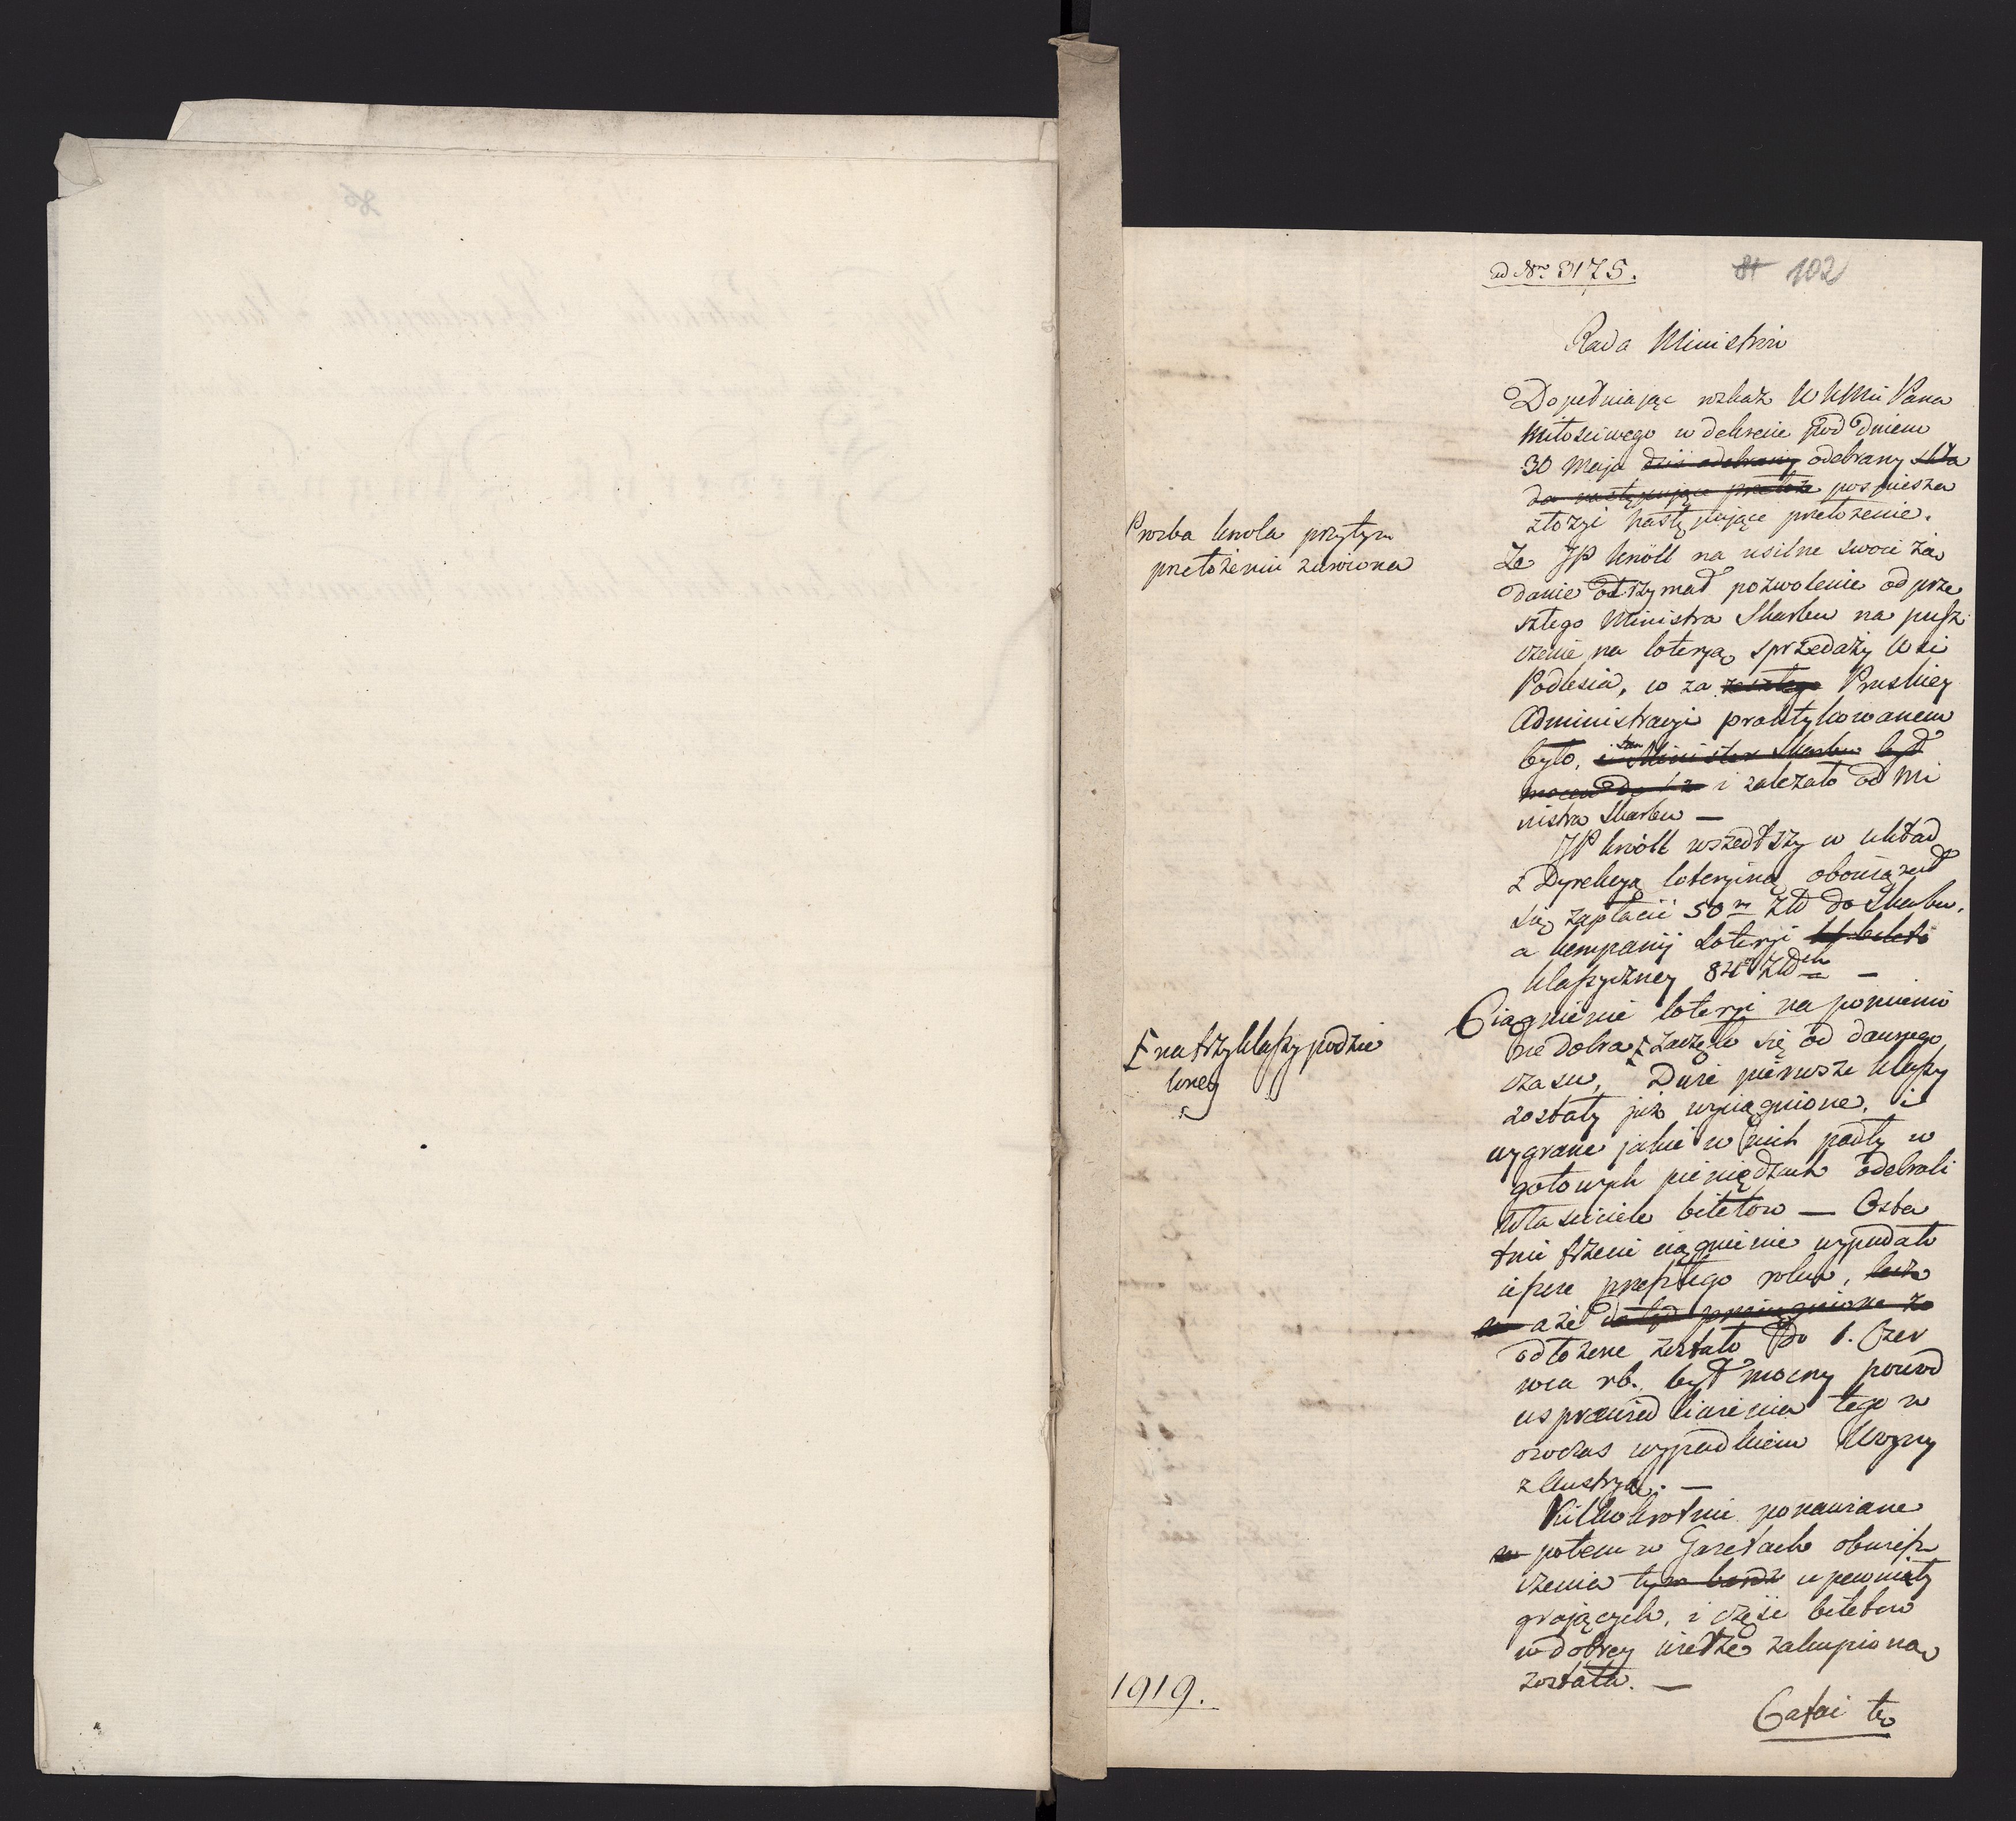 ad Nro 3175.
81 102
Rada Ministrów
Dopełniając rozkaz WKMci Pana
Miłościwego w dekrecie pod dniem
30 Maja dziś odebrany odebrany skła
da następujące przełoże pospiesza
złożyć następujące przełożenie.
Prozba knola przy tym
przełożeniu zwrócona
Że JP Knöll na usilne swoie żą
danie otrzymał pozwolenie od prze
szłego Ministra Skarbu na pusz
czenie na loterją sprzedaży Wsi
Podlesia, co za zeszłego Pruskiey
Administracyi praktykowanem
było, i ten Minister Skarbu był
mocen do i zależało od Mi
nistra Skarbu —
JP Knöll wszedłszy w układ
z Dyrekcyą loteryiną obowiązał
się zapłacić 50m Złł do Skarbu,
a kompanij Loteryi
klassyczney 84m Złłch —
Ciągnienie loteryi na pomienio
ne dobra zaczęło się od dawnego
F na trzy klassy podzie
loney
czasu, Dwie pierwsze klassy
zostały już wyciągnione, i
wygrane jakie w nich padły w
gotowych pieniędzach odebrali
właściciele biletów — Osta
tnie trzecie ciągnienie wypadało
ieszcze przeszłego roku, lecz
a że dotąd wyciągnione zo
odłożone zostało do 1. Czer
wca rb. był mocny powod
usprawiedliwienia tego w
owczas wypadkiem Woyny
z Austryą. —
Kilkokrotnie ponawiane
potem w Gazetach obwiesz
czenia tym bardz upewniały
grających, i część biletow
w dobrey wierze zakupiona
została. —
1919.
Całai to